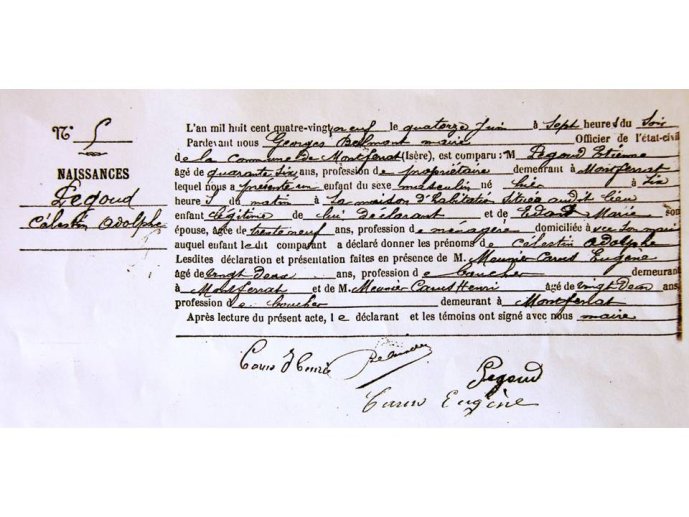 N° 5
NAISSANCES
Pegoud
Célestin Adolphe
L'an mil huit cent quatre-vingt neuf le quatorze Juin à Sept heures du Soir
Pardevant nous Georges Belmont maire Officier de l'état-civil
de la Commune de Montferrat (Isère), est comparu: M Pegoud Etienne
âgé de quarante six ans, profession de propriétaire demeurant à Montferrat
lequel nous a présenté un enfant du sexe masculin né hier à Six
heures du matin à Sa maison d'habitation Située audit lieu
enfant légitime de lui déclarant et de Marie son
épouse, âgée de trente neuf ans, profession de ménagère domiciliée avec son mari
auquel enfant ledit comparant a déclaré donner les prénoms de Célestin Adolphe
Lesdites déclaration et présentation faites en présence de M. Meunier Carus Eugène
âgé de vingt deux ans, profession de boucher demeurant
à Montferrat et de M. Meunier Carus Henri âgé de vingt deux ans,
profession de boucher demeurant à Montferrat
Après lecture du présent acte, le déclarant et les témoins ont signé avec nous maire
Pegoud
Eugène